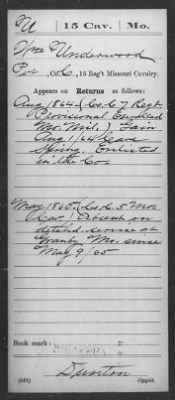 U 15 Cav. Mo.
Wm Underwood
Pvt, Co. C, 15 Reg't Missouri Cavalry.
Appears on Returns as follows:
Aug 1864, (Co. C 7 Regt
Provisional Enrolled
Mo. Mil.) Gain
Aug 1/64 Cave
Spring. Enlisted
in the Co.
May 1865, (Co. C. 15 Mo
Cav.) Absent on
detchd. service at
Granby Mo. since
May 9/65
Book mark:
Dunton
(546) Copyist.